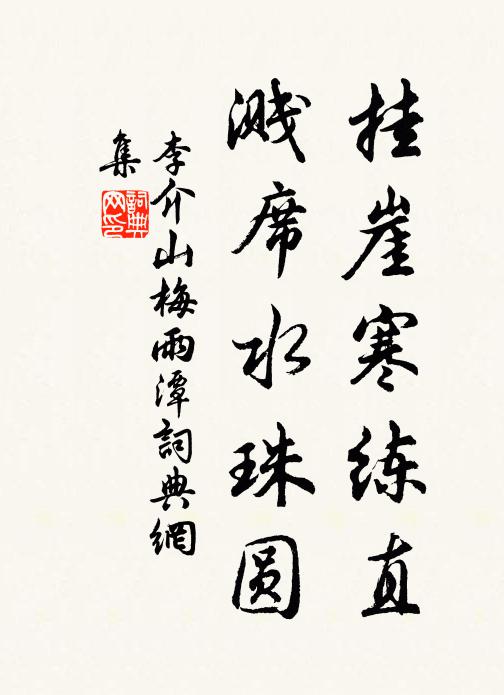 挂崖寒练直
溅席水珠圆
李介山梅雨潭詞典網
集
詞典
网印